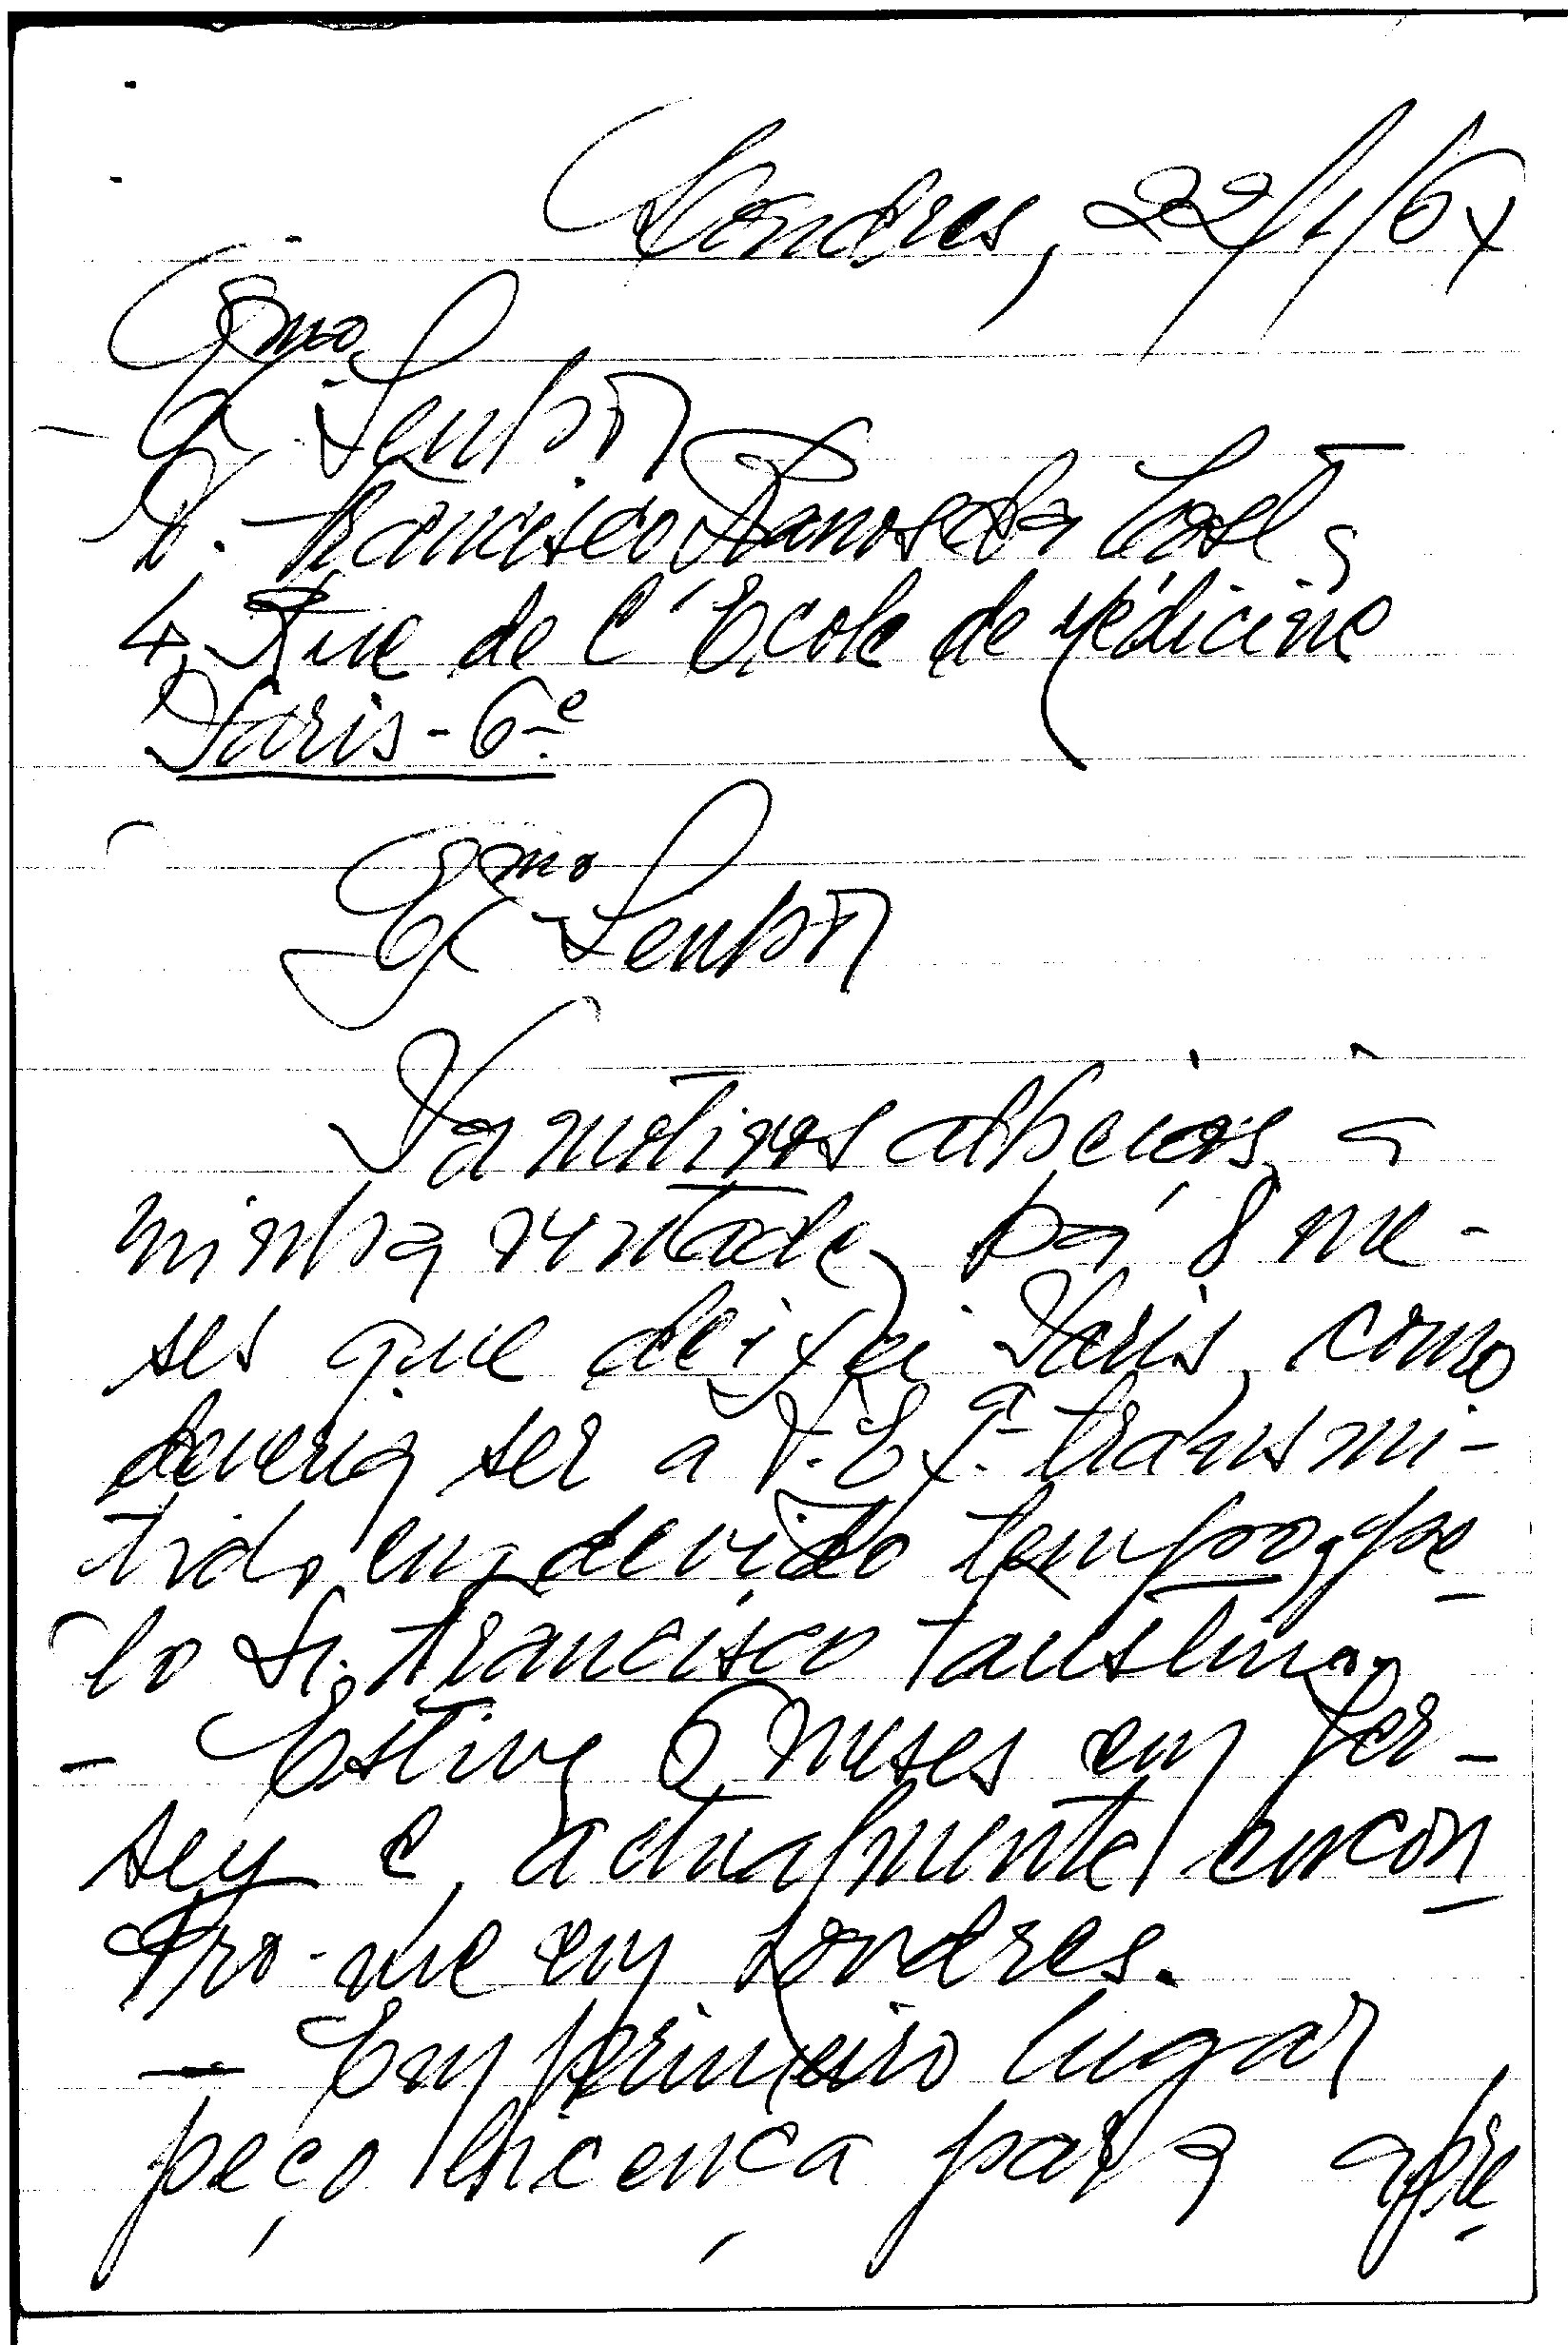 Londres, 22/1/67
Exmo Senhor
D. Francisco Ramos da Costa
4, Rue de l'École de Médicine
Paris - 6.e
Exmo Senhor
Por motivos alheios à
minha vontade, há 8 me-
ses que deixei Paris, como
deveria ser a V. Ex.ª transmi-
tido em devido tempo, pe-
lo Sr. Francisco Faustino.
- Estive 6 meses em Jer-
sey e, actualmente, encon-
tro-me em Londres.
- Em primeiro lugar
peço licença para apre-